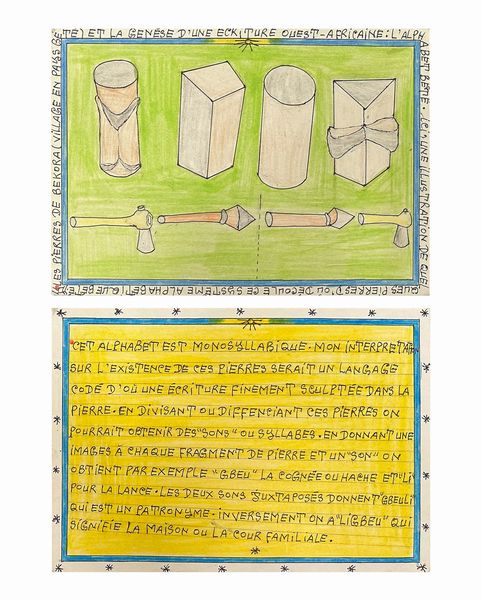 LES PIERRES DE BEKORA (VILLAGE EN PAYS BÉ
TÉ) ET LA GENÈSE D'UNE ECRITURE OUEST-AFRICAINE: L'ALPH
ABET BÉTÉ. ICI, UNE ILLUSTRATION DE QUEL
QUES PIERRES D'OU DÉCOULE CE SYSTÈME ALPHABETIQUE BÉTÉ
CET ALPHABET EST MONOSYLLABIQUE. MON INTERPRETATION
SUR L'EXISTENCE DE CES PIERRES SERAIT UN LANGAGE
CODÉ D'OÙ UNE ÉCRITURE FINEMENT SCULPTÉE DANS LA
PIERRE. EN DIVISANT OU DIFFENCIANT CES PIERRES ON
POURRAIT OBTENIR DES "SONS" OU SYLLABES. EN DONNANT UNE
IMAGES À CHAQUE FRAGMENT DE PIERRE ET UN "SON" ON
OBTIENT PAR EXEMPLE "GBEU" LA COGNÉE OU HACHE ET "LI"
POUR LA LANCE. LES DEUX SONS JUXTAPOSÉS DONNENT "GBEULI"
QUI EST UN PATRONYME. INVERSEMENT ON A "LIGBEU" QUI
SIGNIFIE LA MAISON OU LA COUR FAMILIALE.